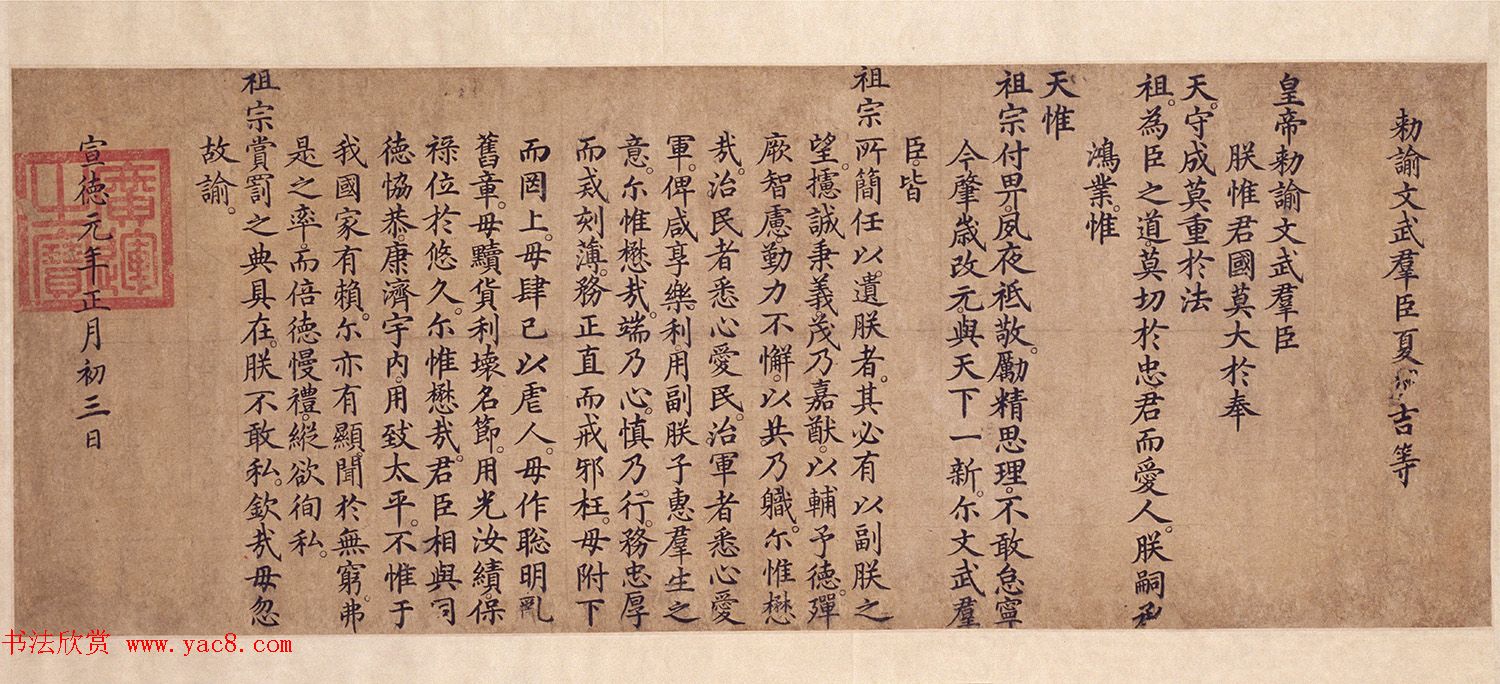 勑諭文武羣臣夏 吉等
皇帝勑諭文武羣臣
朕惟君國莫大於奉
天。守成莫重於法
祖。為臣之道。莫切於忠君而愛人。朕嗣承
鴻業。惟
天惟
祖宗付畀。夙夜祇敬。勵精思理。不敢怠寧
今肇歲改元。與天下一新。尓文武羣
臣。皆
祖宗所簡任以遺朕者。其必有以副朕之
望。攄誠秉義。茂乃嘉猷。以輔予德。殫
厥智慮。勤力不懈。以共乃職。尓惟懋
哉。治民者悉心愛民。治軍者悉心愛
軍。俾咸享樂利。用副朕子惠羣生之
意。尓惟懋哉。端乃心。慎乃行。務忠厚
而戒刻薄。務正直而戒邪枉。毋附下
而罔上。毋肆己以虐人。毋作聡明亂
舊章。毋黷貨利壞名節。用光汝績。保
禄位於悠久。尓惟懋哉。君臣相與同
徳恊恭。康濟宇内。用致太平。不惟于
我國家有賴。尓亦有顯聞於無窮。弗
是之率。而倍徳慢禮。縱欲徇私。
祖宗賞罰之典具在。朕不敢私。欽哉毋忽
故諭。
宣徳元年正月初三日
廣運之寶
书法欣赏 www.yac8.com